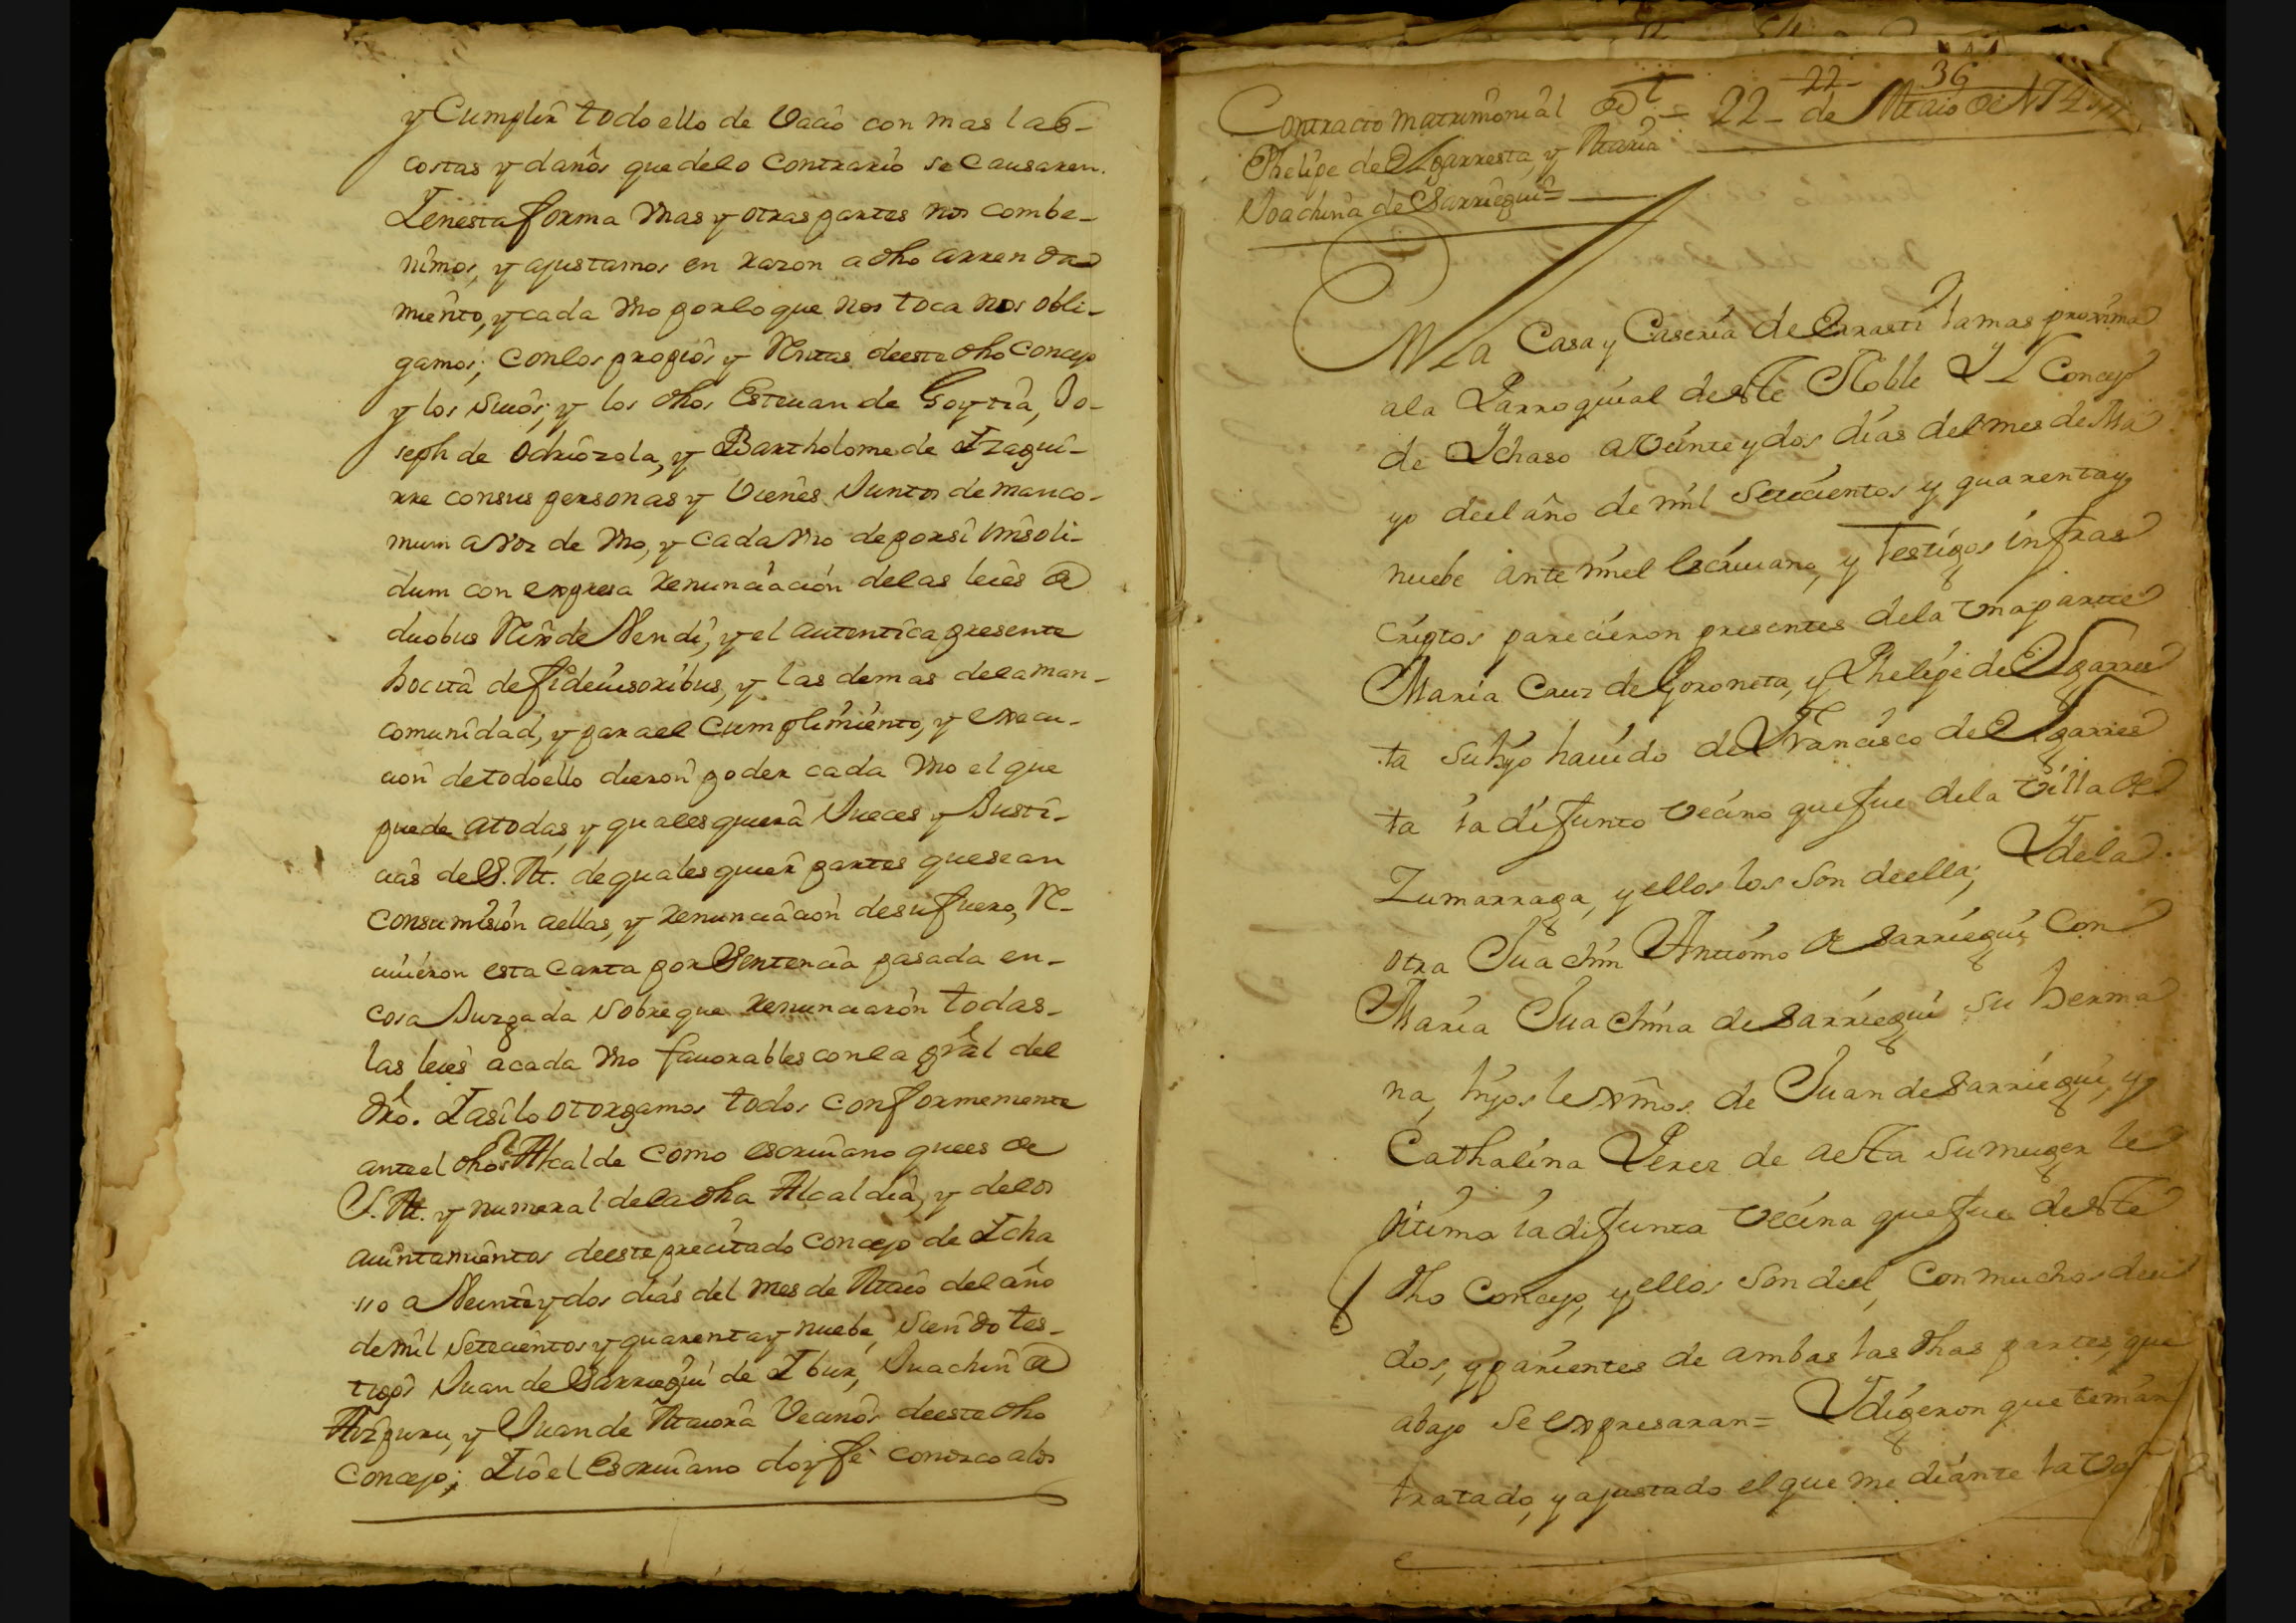 y Cumplir todo ello de Vacio con mas las-
costas y daños que delo Contrario se Causaren.
Ienesta forma Vnas y otras partes nos combe-
nimos, y ajustamos en razon a dho arrenda
miento, y cada Vno porlo que nos toca nos obli-
gamos; conlos propios y Rentas deeste dho Concejo
y los Suios; y los dhos Esteuan de Goytia, Jo-
seph de Odriozola, y Bartholome de Izagui-
rre consus personas y Vienes Juntos de manco-
mun a voz de Vno, y cada Vno deporsi Ynsoli-
dum con expresa renunciacion delas leies de
duobus Rex de Vendi, y el autentica presente
hocita de fideiusoribus, y las demas dela man-
comunidad, y parael Cumplimiento, y execu-
cion detodoello dieron poder cada Vno el que
puede atodas, y qualesquiera Jueces y Justi-
cias de S. M. de qualesquier partes quesean
Consumision aellas, y renunciacion desufuero, Re-
ciuieron esta Carta por Sentencia pasada en-
cosa Juzgada Sobreque renunciaron todas-
las leies acada Vno fauorables conla gral del
dro. Iasilo otorgamos todos conformemente
anteel dho Sr Alcalde como escriuano quees de
S. M. y numeral dela dha Alcaldia, y delos
auintamientos deeste precitado Concejo de Icha
sso a Veinteydos dias del mes de Maio del año
demil Setecientos y quarenta y nuebe, Siendo tes-
tigos Juan de Sarriegui de Ibur, Juachin de
Aizpuru, y Juan de Maiora Vecinos deeste dho
Concejo; Iio el Escriuano doy fe conozco alos
22 36
Contracto matrimonial de - 22- de Maio de 1749
Phelipe de Ugarresta, y Maria
Joachina de Sarriegui=
En La Casa y Caseria de Erasti la mas proxima
ala Parroquial deste Noble Y L Concejo
de Ychaso a veinte y dos dias del mes de Ma
yo deel año de mil Setecientos y quarenta y
nuebe ante mi el Escriuano, y Testigos infras
criptos parecieron presentes dela una partte
Maria Cruz de Goroneta, y Phelipe de Ugarres
ta Su hijo hauido de Francisco de Ugarres
ta ia difunto vecino que fue dela villa de
Zumarraga, y ellos los Son deella; Y dela
otra Juachin Anttonio de Sarriegui Con
Maria Juachina de Sarriegui su herma
na, hijos lexmos de Juan de Sarriegui, y
Cathalina Perez de Aesta Su muger le
xitima ia difunta vecina que fue deste
dho Concejo, y ellos Son deel, Con muchos deu
dos, y parientes de ambas las dhas partes, que
abajo Se expresaran= Y digeron que tenian
tratado, y ajustado el que mediante la vol